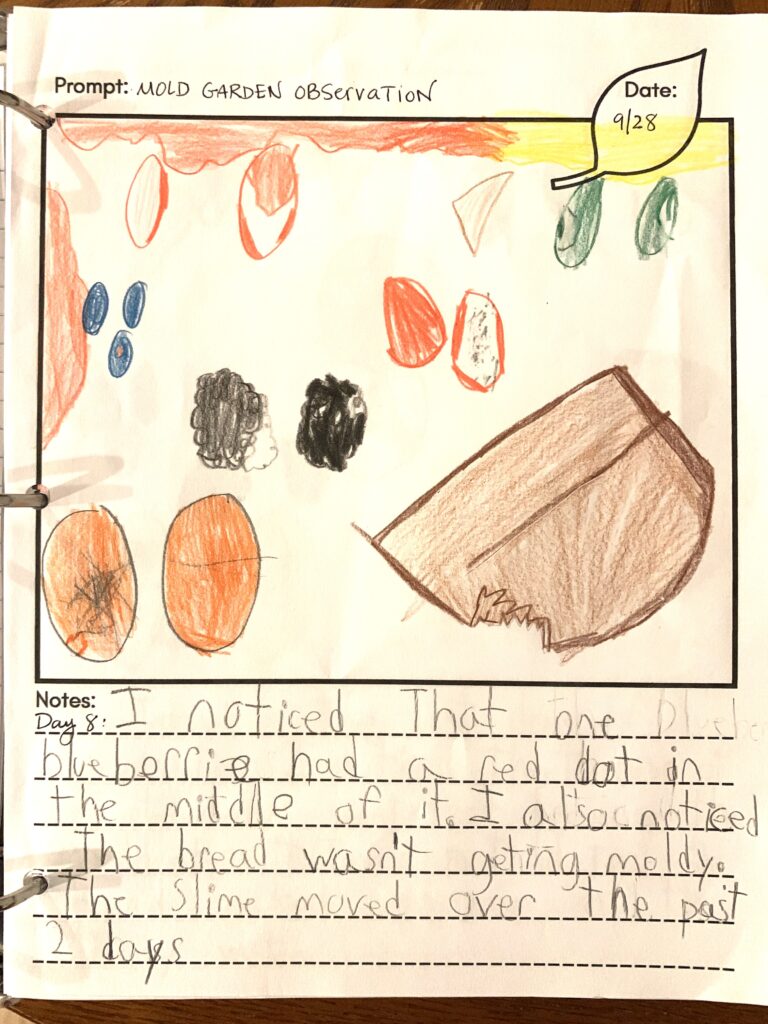 Prompt: MOLD GARDEN OBSERVATION
Date:
9/28
Notes:
Day 8: I noticed That one blueb
blueberrie had a red dot in
the middle of it. I also noticed
The bread wasn't geting moldy.
The Slime moved over the past
2 days